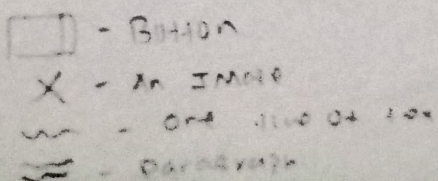 - Button
- An Image
- One line of text
- Paragraph